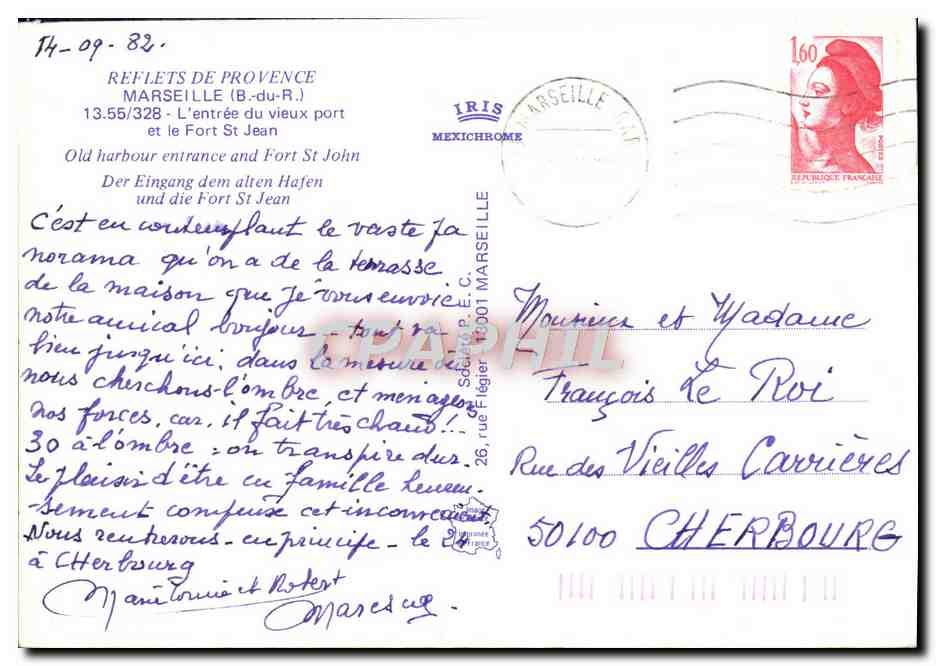 14-09-82.
REFLETS DE PROVENCE
MARSEILLE (B.-du-R.)
13.55/328 - L'entrée du vieux port
et le Fort St Jean
Old harbour entrance and Fort St John
Der Eingang dem alten Hafen
und die Fort St Jean
C'est en contemplant le vaste pa
norama qu'on a de la terrasse
de la maison que je vous envoie
notre amical bonjour - tout va
bien jusqu'ici, dans la mesure où
nous cherchons l'ombre, et ménageons
nos forces, car, il fait très chaud!!
30 à l'ombre : on transpire dur.
Le plaisir d'être en famille heureu-
-sement compense cet inconvénient.
Nous rentrerons - en principe - le 24
à Cherbourg
Marie Louise et Robert
IRIS
MEXICHROME
Société P.E.C.
26, rue Flégier - 13001 MARSEILLE
MARSEILLE
1,60
POSTES
REPUBLIQUE FRANÇAISE
Monsieur et Madame
François Le Roi
Rue des Vieilles Carrières
50100 CHERBOURG
CPAPHIL